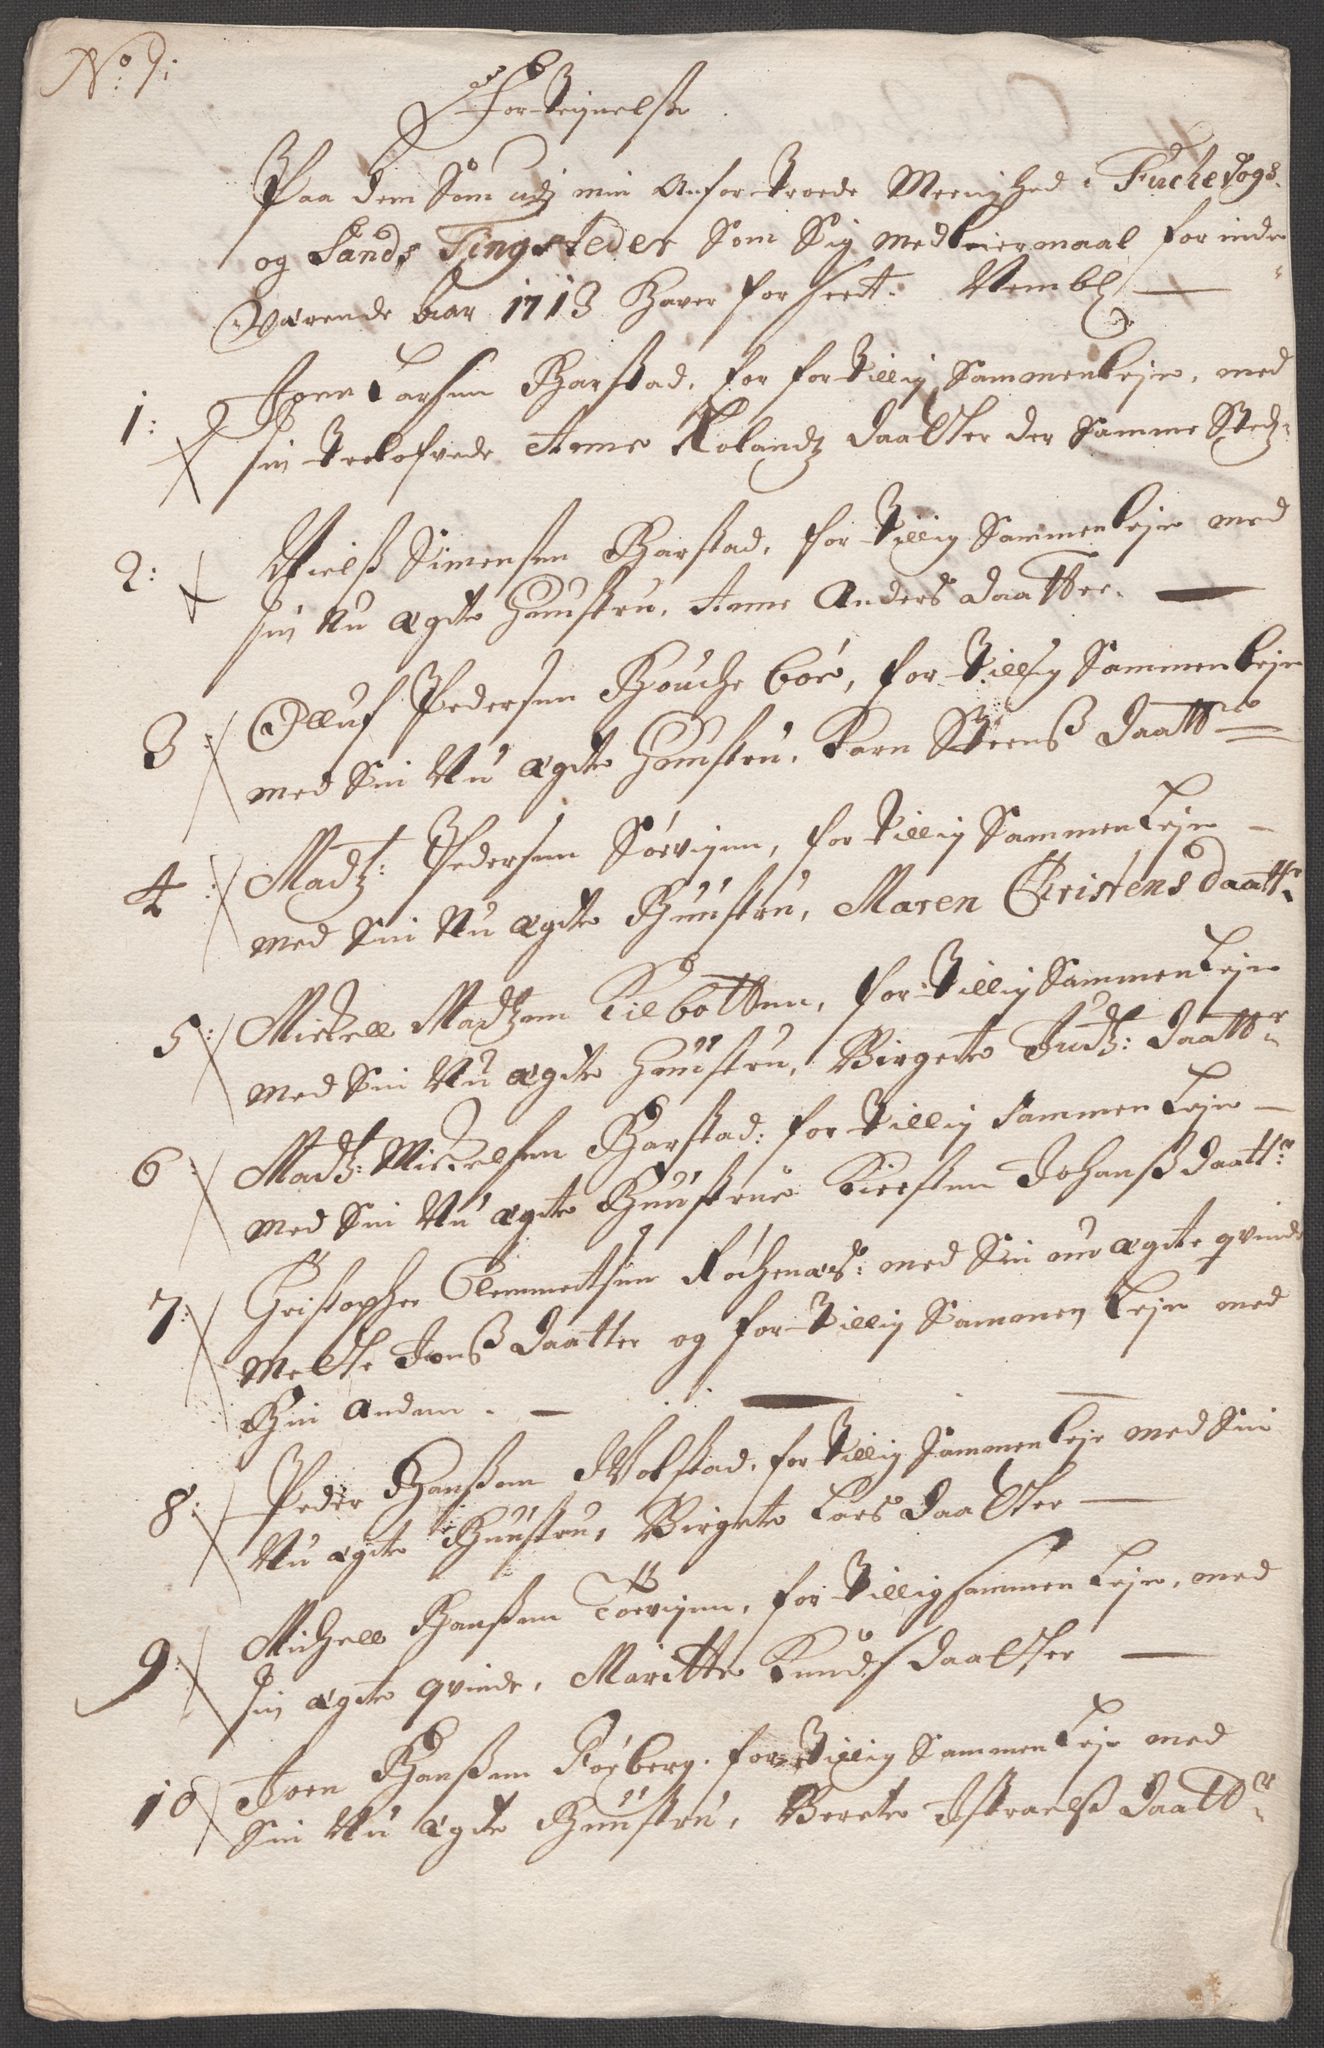 No. 7:
Fortegnelse
Paa dem Som udj min Anfortroede Meenighed i Fuchevogs
og Sands Tingsteder Som Sig med leiermaal for inde
Værende Aar 1713 Haver forseet. Nembl:
1: Joen Larsen Harstad, for fortillig Sammenleje, med
sin trolofvede Anne Rolandtz daatter der Samme Stedz
2: Nielß Simensen Harstad, for tillig Sammenleje med
sin Nu ægte Hæustru, Anne Anders daatter.
3: Olluf Pedersen Houcheböe, for tillig Sammenleje
med Sin Nu ægte Houstru, Karn Steenß daatter
4: Madtz: Pedersen Sörvigen, for tillig Sammen Leje
med Sin Nu ægte Huustru, Maren Christens daattr
5: Mickell Madtzen Kilbotten, for tillig Sammen Leje
med Sin Nu ægte Houstru, Birgete Judtz: daattr
6: Madtz: Mickelsen Harstad: for tillig Sammen Leje
med Sin Nu ægte Huustrue Kiersten Johanß daattr:
7: Christopher Clemmetsen Röchenæs: med Sin nu ægte qvinde
Mette Jonß daatter og for tillig Sammen Leje med
Hin Anden.
8: Peder Hanßen Wolstad, for tillig Sammenleje med Sin
Nu ægte Huustru, Birgete Lars daatter
9: Michell Hanßen Törvigen, for tillig sammen Leje, med
sin ægte qvinde, Maritte Knudß daatter
10 Joen Hanßen Röeberg. for tillig Sammen Leje med
Sin Nu ægte Huustru, Berete Iskraelß daattr